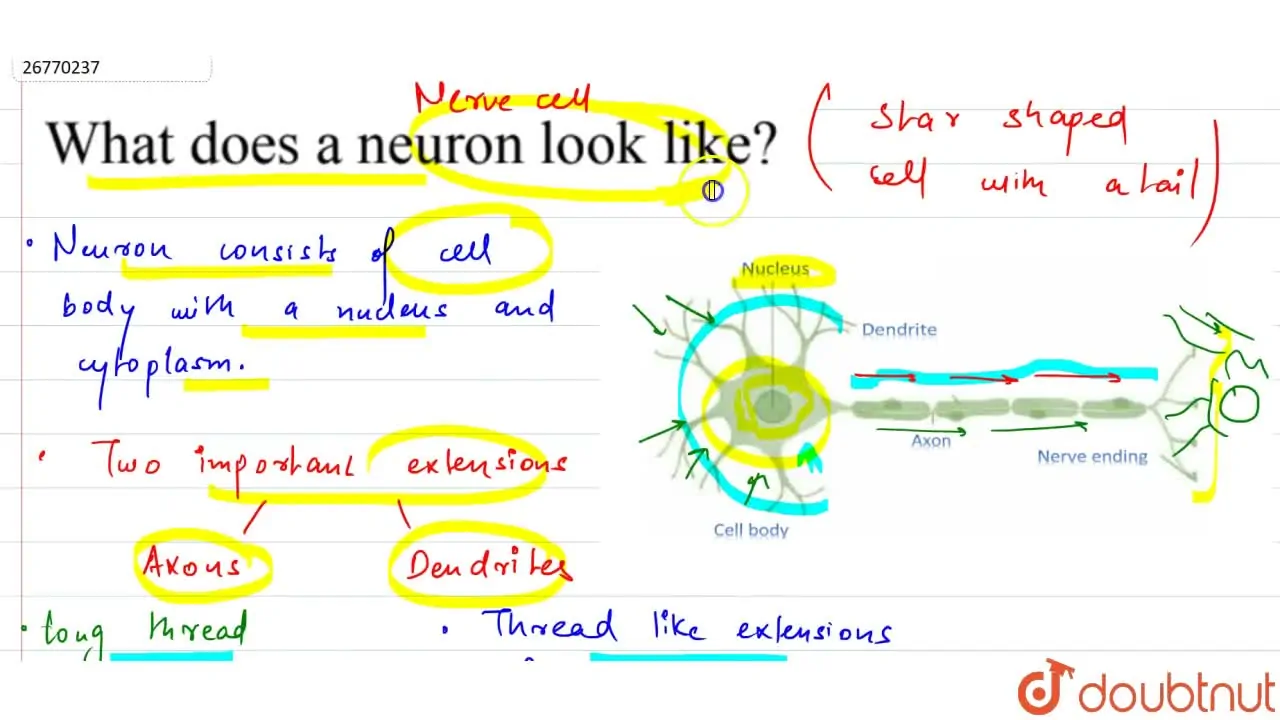 26770237
Nerve cell
What does a neuron look like?
(Star shaped
cell with a tail)
• Neuron consists of cell
body with a nucleus and
cytoplasm.
Nucleus
Dendrite
Axon
Nerve ending
Cell body
• Two important extensions
Axons
Dendrites
• long thread
• Thread like extensions
doubtnut